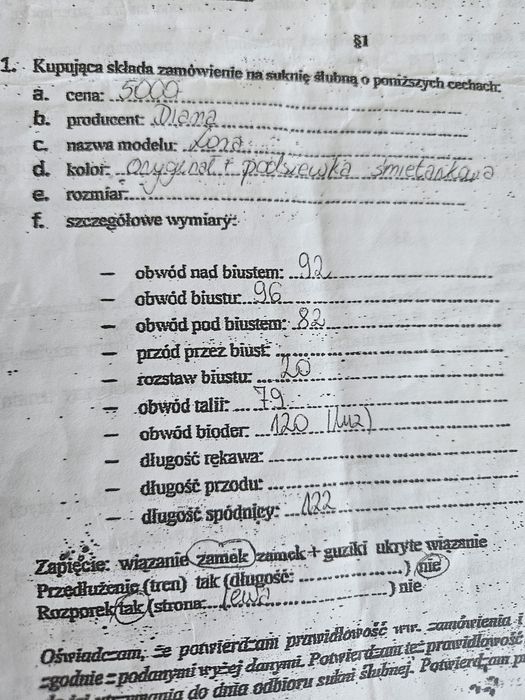 §1
1. Kupująca składa zamówienie na suknię ślubną o poniższych cechach:
a. cena: 5000
b. producent: Diana
c. nazwa modelu: Lora
d. kolor: oryginał + podszewka śmietankowa
e. rozmiar:
f. szczegółowe wymiary:
– obwód nad biustem: 92
– obwód biustu: 96
– obwód pod biustem: 82
– przód przez biust:
– rozstaw biustu: 20
– obwód talii: 79
– obwód bioder: 120 (luz)
– długość rękawa:
– długość przodu:
– długość spódnicy: 122
Zapięcie: wiązanie zamek zamek + guziki ukryte wiązanie
Przedłużenie (tren) tak (długość: ) nie
Rozporek tak (strona: lewa ) nie
Oświadczam, że potwierdzam prawidłowość ww. zamówienia i
zgodnie z podanymi wyżej danymi. Potwierdzam też prawidłowość
do dnia odbioru sukni ślubnej. Potwierdzam